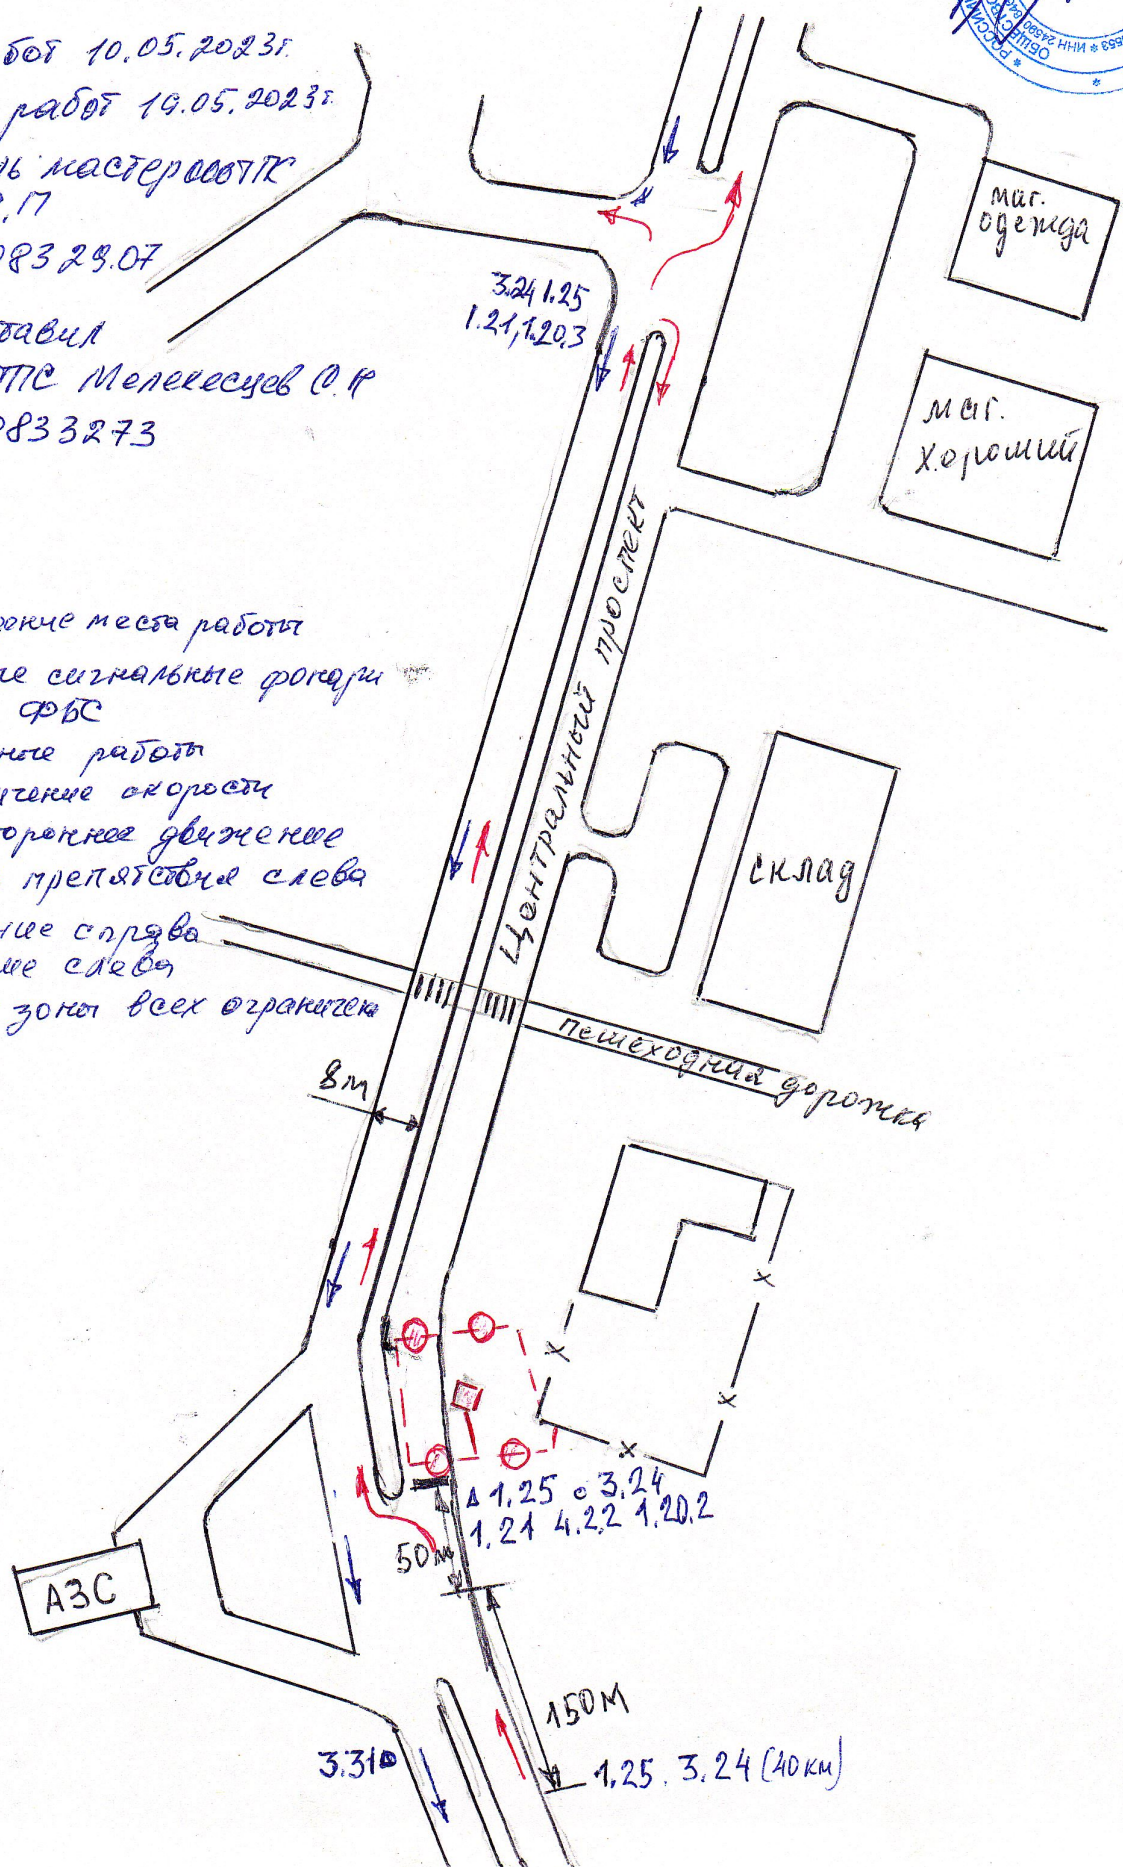 бот 10.05.2023г.
работ 19.05.2023г.
ль мастер
П
98329.07
тавил
ТТС Мелекесцев С.Н
9833273
ение места работы
ые сигнальные фонари
ФБС
ные работы
ичение скорости
тороннее движение
препятствия слева
ние справа
ние слева
зоны всех ограничен
маг.
одежда
3.24 1.25
1.21, 1.20.3
маг.
хороший
Центральный проспект
склад
пешеходная дорожка
8м
1.25 3.24
1.21 4.2.2 1.20.2
50м
АЗС
150м
3.31
1.25. 3.24 (40км)